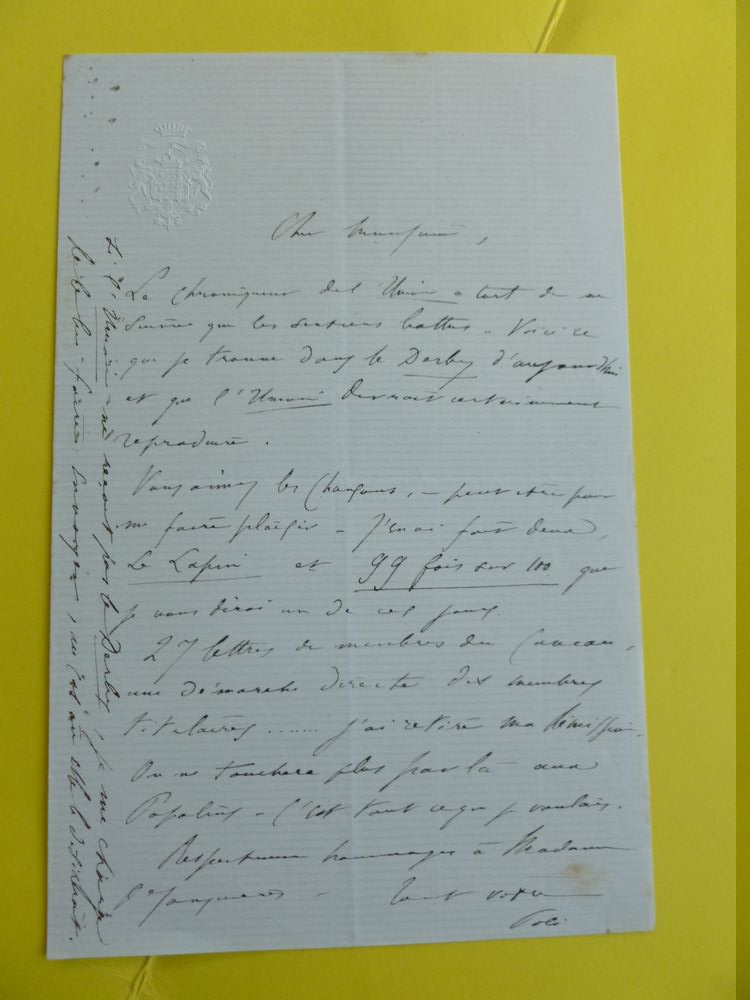 Cher Monsieur,
Le chroniqueur de l'Union a tort de ne
suivre que les sentiers battus. Voici ce
que je trouve dans le Derby d'aujourd'hui
et que l'Union devrait certainement
reproduire.
Vous aimez les chansons, – peut être pour
me faire plaisir – J'en ai fait deux,
Le Lapin et 99 fois sur 100 que
je vous dirai un de ces jours.
27 lettres de membres du Caveau,
une démarche directe des membres
titulaires ...... j'ai retiré ma démission.
On ne touchera plus par là aux
– C'est tout ce que je voulais.
Respectueux hommages à Madame
Tout votre
Si l'Union ne reçoit pas le Derby, je me charge
de le lui faire envoyer, en